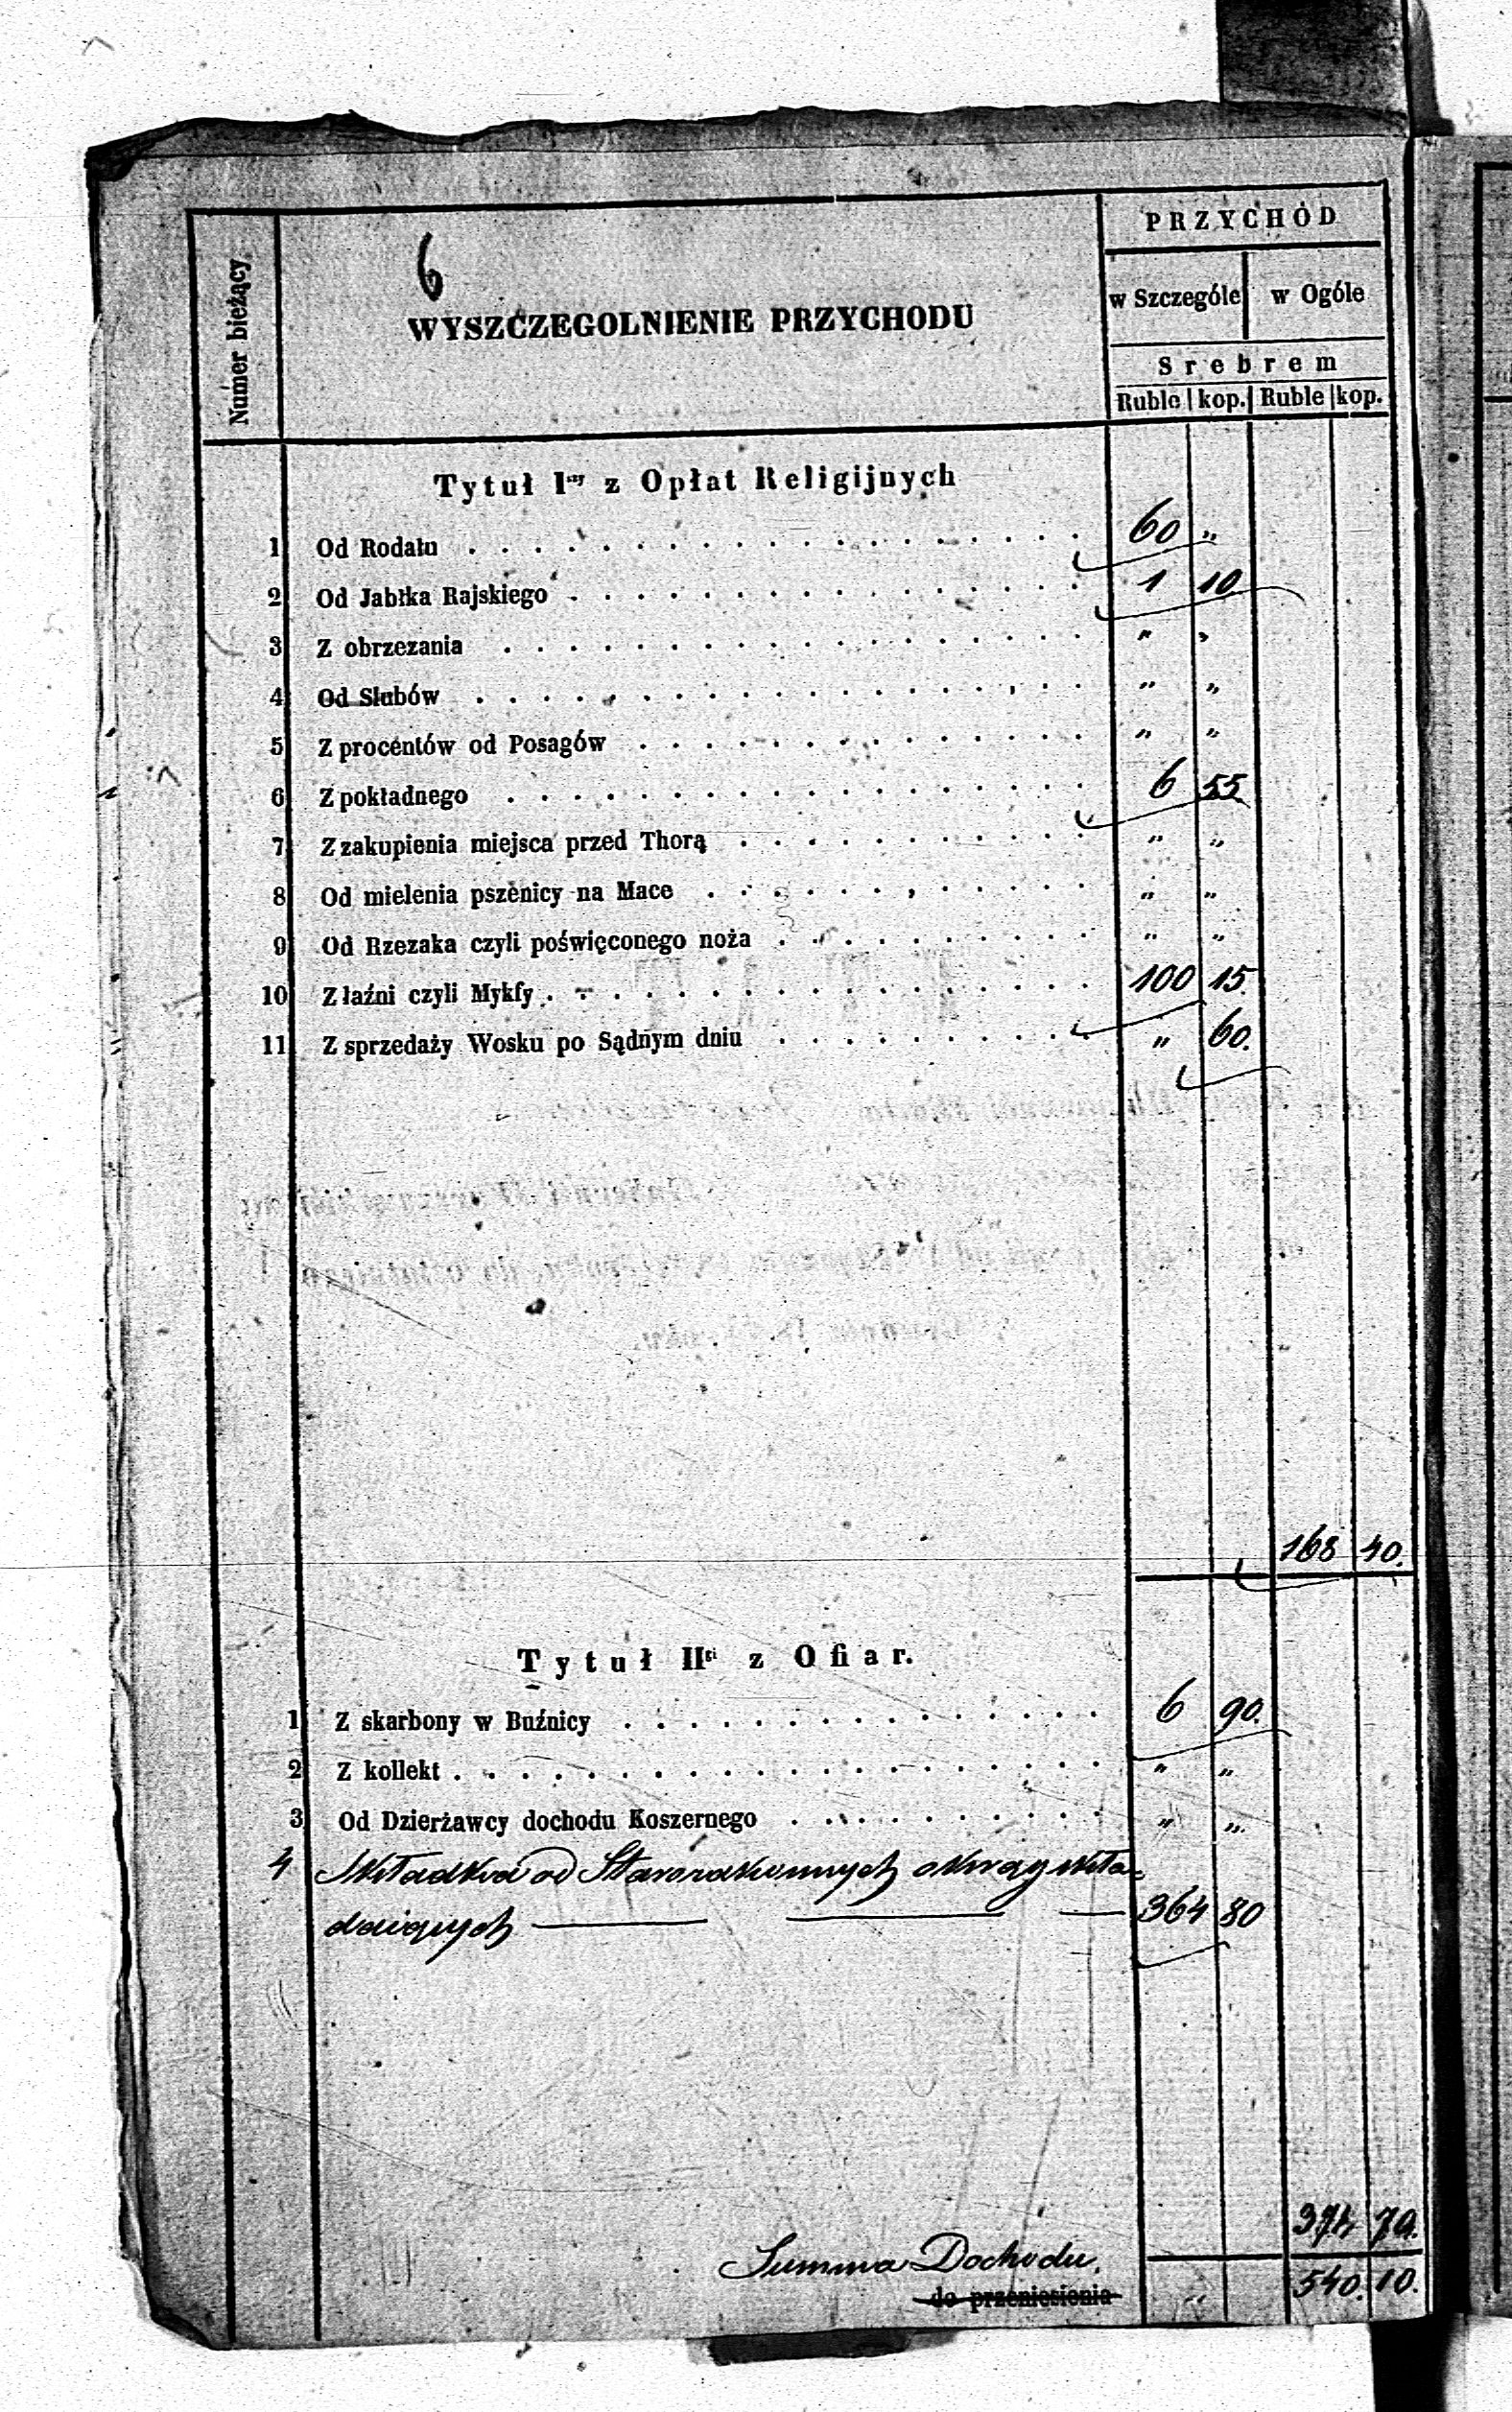 6
Numer bieżący
WYSZCZEGOLNIENIE PRZYCHODU
PRZYCHÓD
w Szczególe w Ogóle
Srebrem
Ruble kop. Ruble kop.
Tytuł Iszy z Opłat Religijnych
1 Od Rodału . . . 60 „
2 Od Jabłka Rajskiego . . . 1 10
3 Z obrzezania . . . „ „
4 Od Slubów . . . „ „
5 Z procentów od Posagów . . . „ „
6 Z pokładnego . . . 6 55
7 Z zakupienia miejsca przed Thorą . . . „ „
8 Od mielenia pszenicy na Mace . . . „ „
9 Od Rzezaka czyli poświęconego noża . . . „ „
10 Z łaźni czyli Mykfy . . . 100 15.
11 Z sprzedaży Wosku po Sądnym dniu . . . „ 60.
168 40.
Tytuł IIgi z Ofiar.
1 Z skarbony w Buźnicy . . . 6 90.
2 Z kollekt . . . „ „
3 Od Dzierżawcy dochodu Koszernego . . . „ „
4 Składka od Starozakonnych okrąg skła-
daiących 364 80
371 70.
Summa Dochodu.
do przeniesienia „ 540. 10.